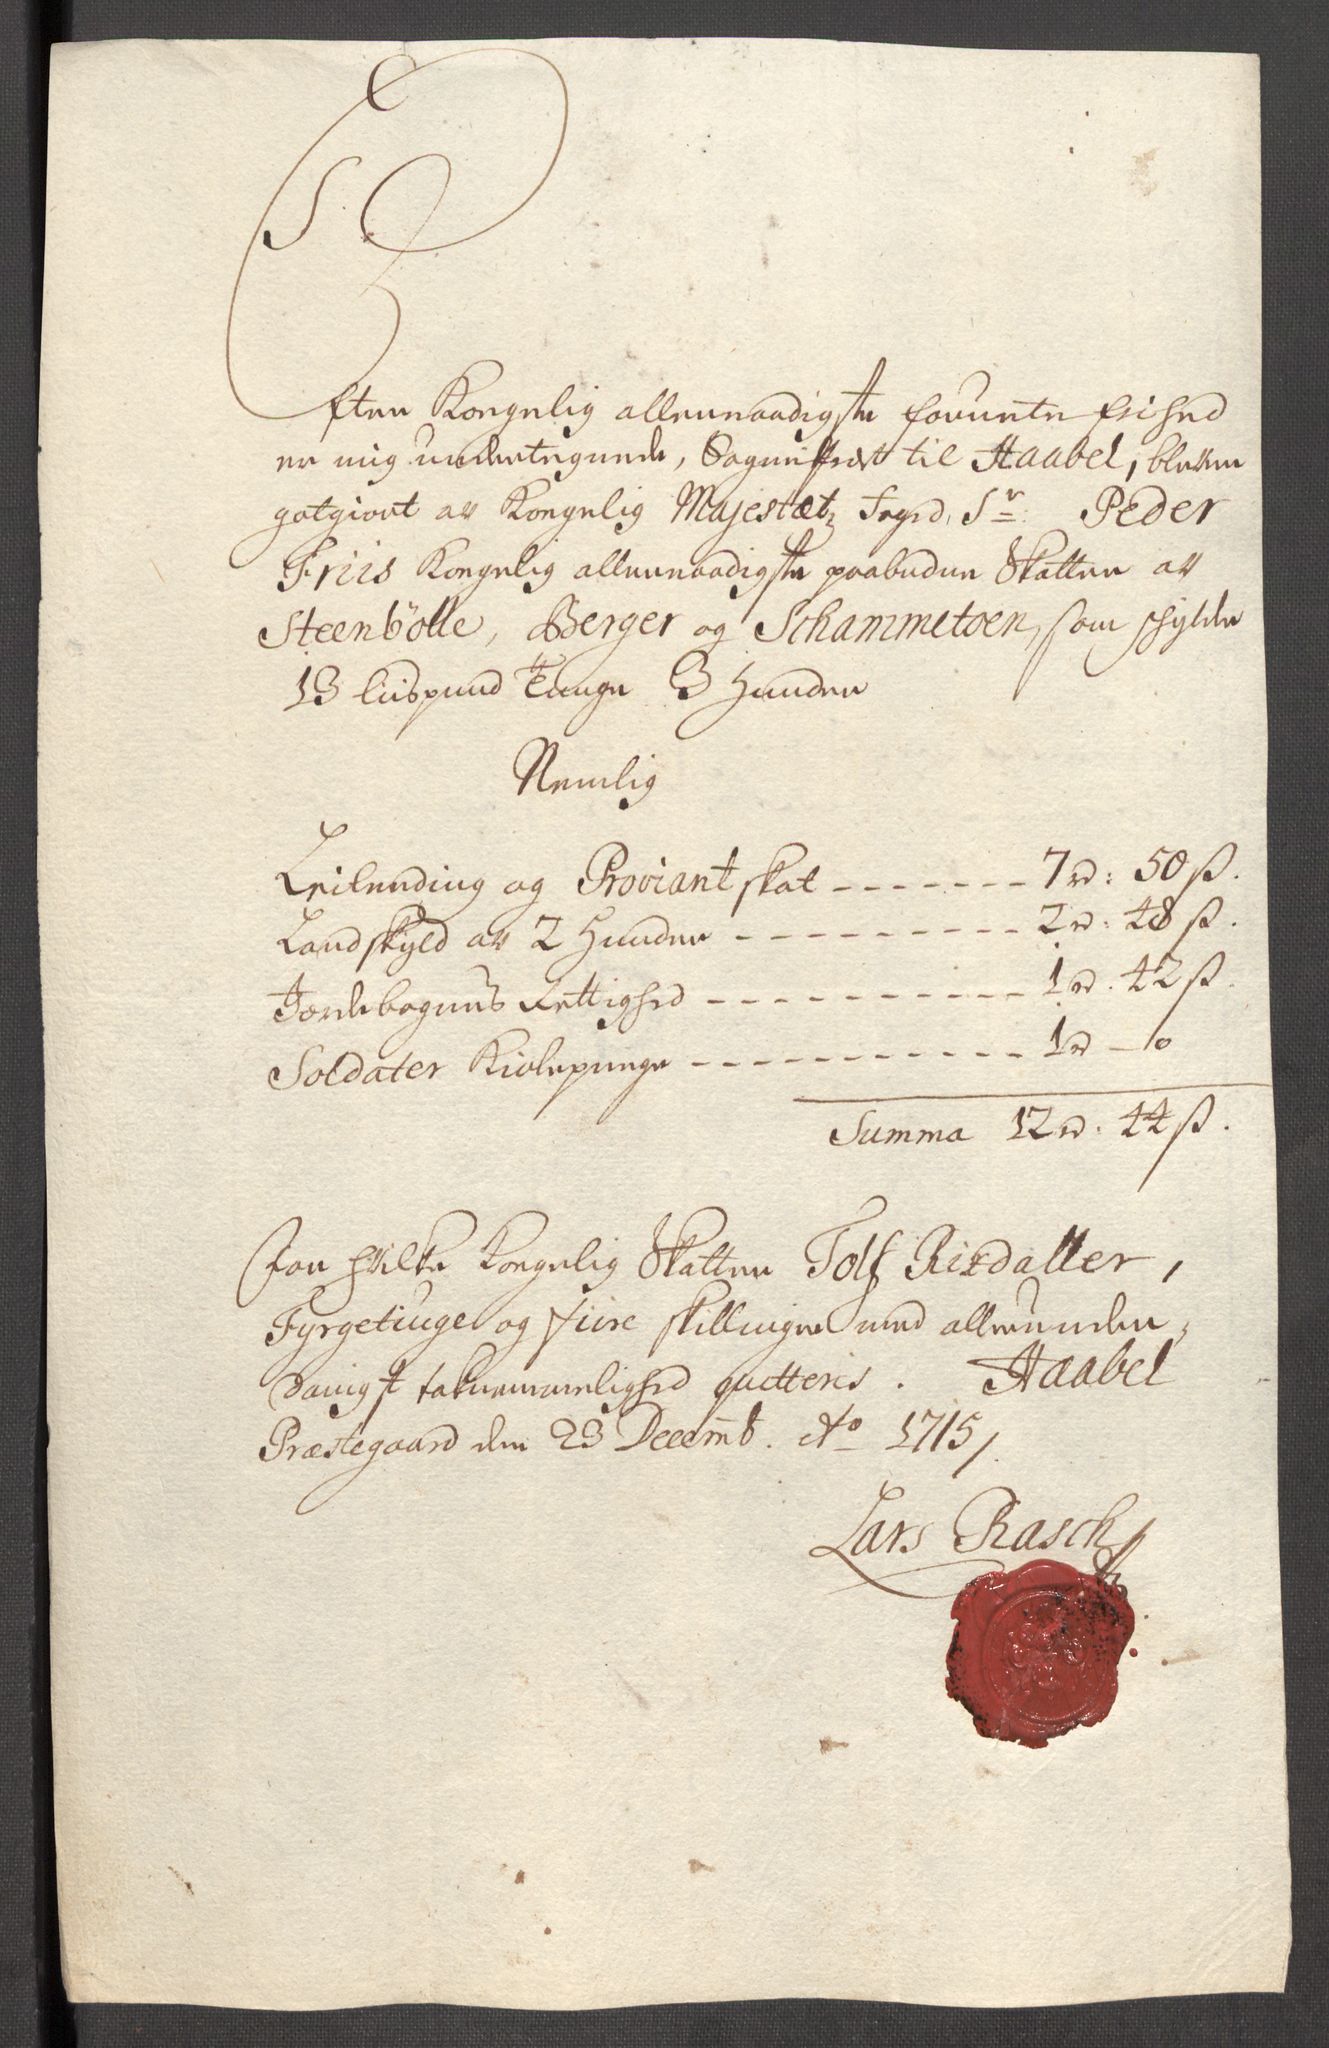 Efter Kongelig allernaadigste forunte frihed
er mig underteignede, Sogneprest til Haabel, bleven
gotgiort av Kongelig Majestætz Fogd, Sr. Peder
Friis Kongelig allernaadigste paabudne Skatter av
Steenbölle, Berger og Schammetoen, som skylder
13 lispund Tunge 3 Huder
Nemlig
Leilending og Proviant skat ------- 7 rd: 50 ß.
Landskyld av 2 Huder ---------- 2 rd: 48 ß.
Jordebogens Rettighed ----------- 1 rd. 42 ß.
Soldater Kiolepenge ------------ 1 rd – 0
Summa 12 rd: 44 ß.
For hvilke Kongelig Skatter Tolf Rixdaller,
Fyrgetiuge og fiire skillinger med allerunder,
danigst taknemmelighed quitteris. Haabel
Præstegaard den 23 Decemb. Ao 1715/.
Lars Rasch